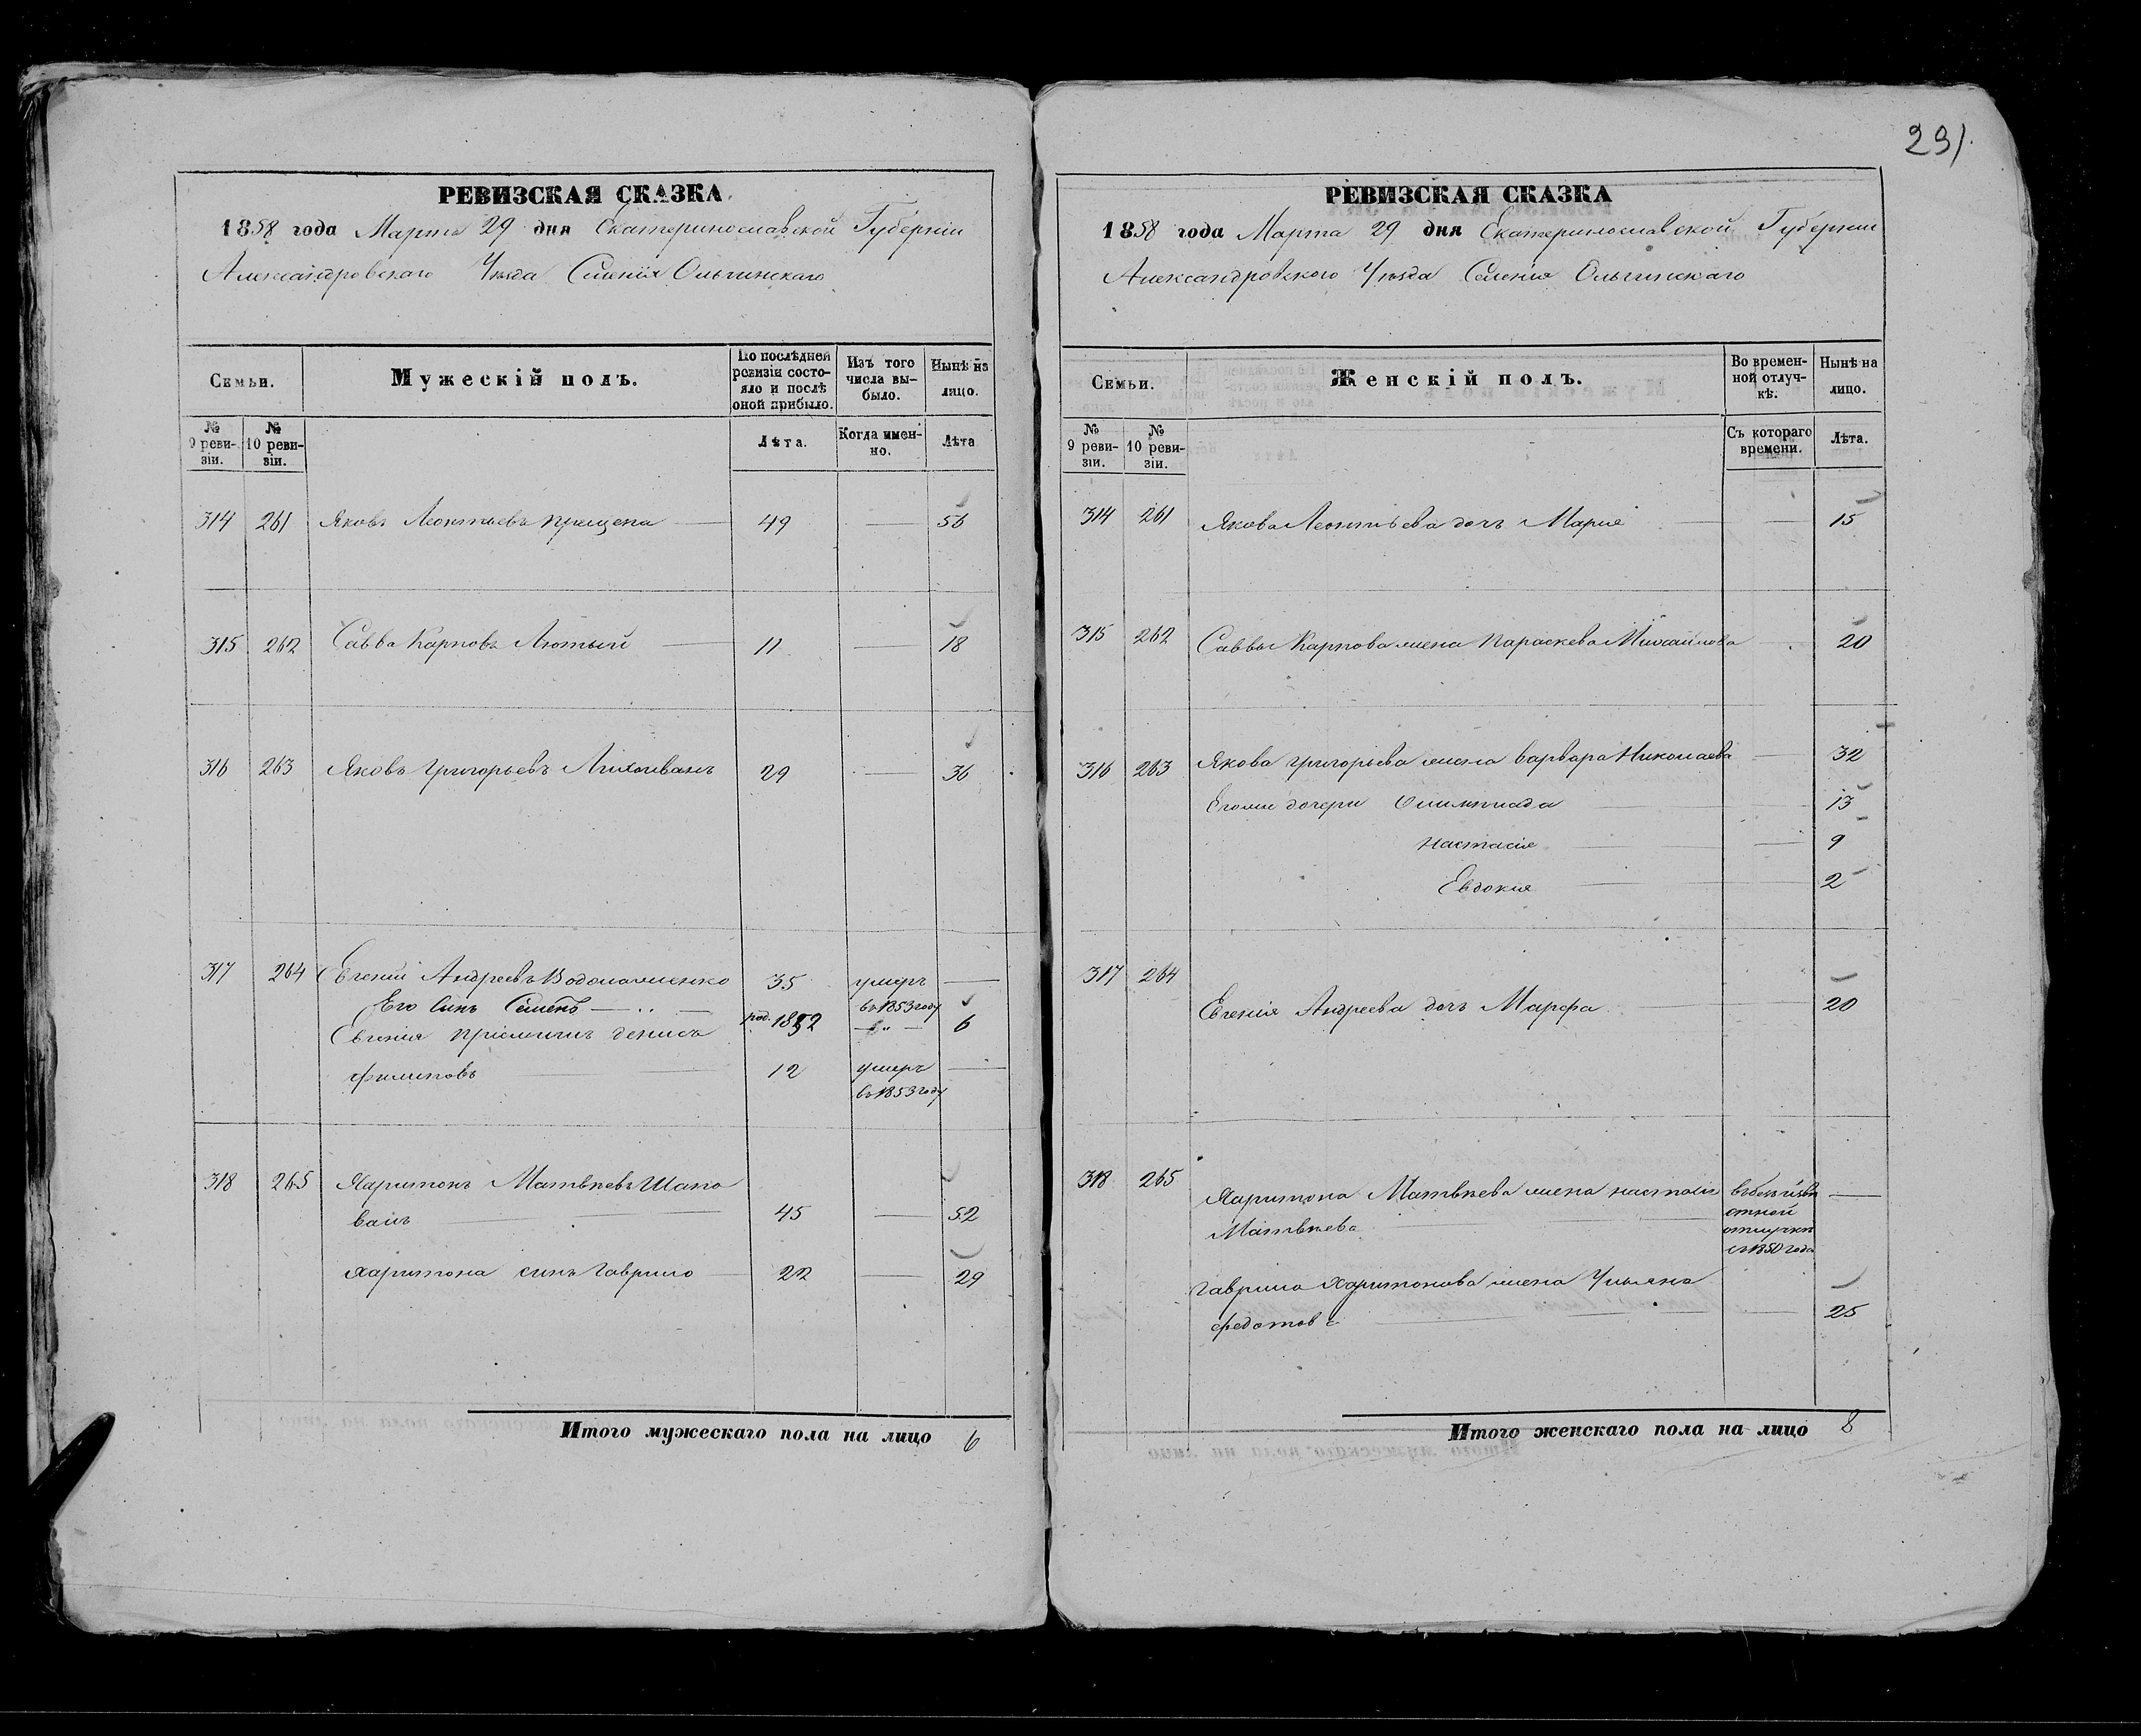 291.
РЕВИЗСКАЯ СКАЗКА.
1858 года Марта 29 дня Екатеринославской Губерніи
Александровскаго Уѣзда Селенія Ольгинскаго
Семьи. Мужескій полъ. По послѣдней ревизіи состояло и послѣ оной прибыло. Изъ того числа выбыло. Нынѣ на лицо.
№ 9 ревизіи. № 10 ревизіи. Лѣта. Когда именно. Лѣта
314 261 Яковъ Леонтьевъ Прищепа 49 — 56
315 262 Савва Карповъ Лютый 11 — 18
316 263 Яковъ Григорьевъ 29 — 36
317 264 Евгеній Андреевъ 35 умеръ —
въ 1853 году
Его сынъ Семенъ — род. 1852 — " — 6
Евгенія пріемышъ Денисъ
Филиповъ 12 умеръ —
въ 1853 году
318 265 Харитонъ Матвѣевъ Шапо
валъ 45 — 52
Харитона сынъ Гаврило 22 — 29
Итого мужескаго пола на лицо 6
РЕВИЗСКАЯ СКАЗКА
1858 года Марта 29 дня Екатеринославской Губерніи
Александровского Уѣзда Селенія Ольгинскаго
Семьи. Женскій полъ. Во временной отлучкѣ. Нынѣ на лицо.
№ 9 ревизіи. № 10 ревизіи. Съ котораго времени. Лѣта.
314 261 Якова Леонтьева дочь Марія — 15
315 262 Саввы Карпова жена Параскева Михайлова 20
316 263 Якова Григорьева жена Варвара Николаева — 32
Егоже дочери Олимпіада 13
Настасія — 9
Евдокия 2
317 264
Евгенія Андреева дочь Марфа 20
318 265 Харитона Матвѣева жена Настасія въ безъизвѣ —
Матвѣева стной
отлучкѣ
съ 1850 года
Гаврила Харитонова жена Ульяна
Федотова — 25
Итого женскаго пола на лицо 8